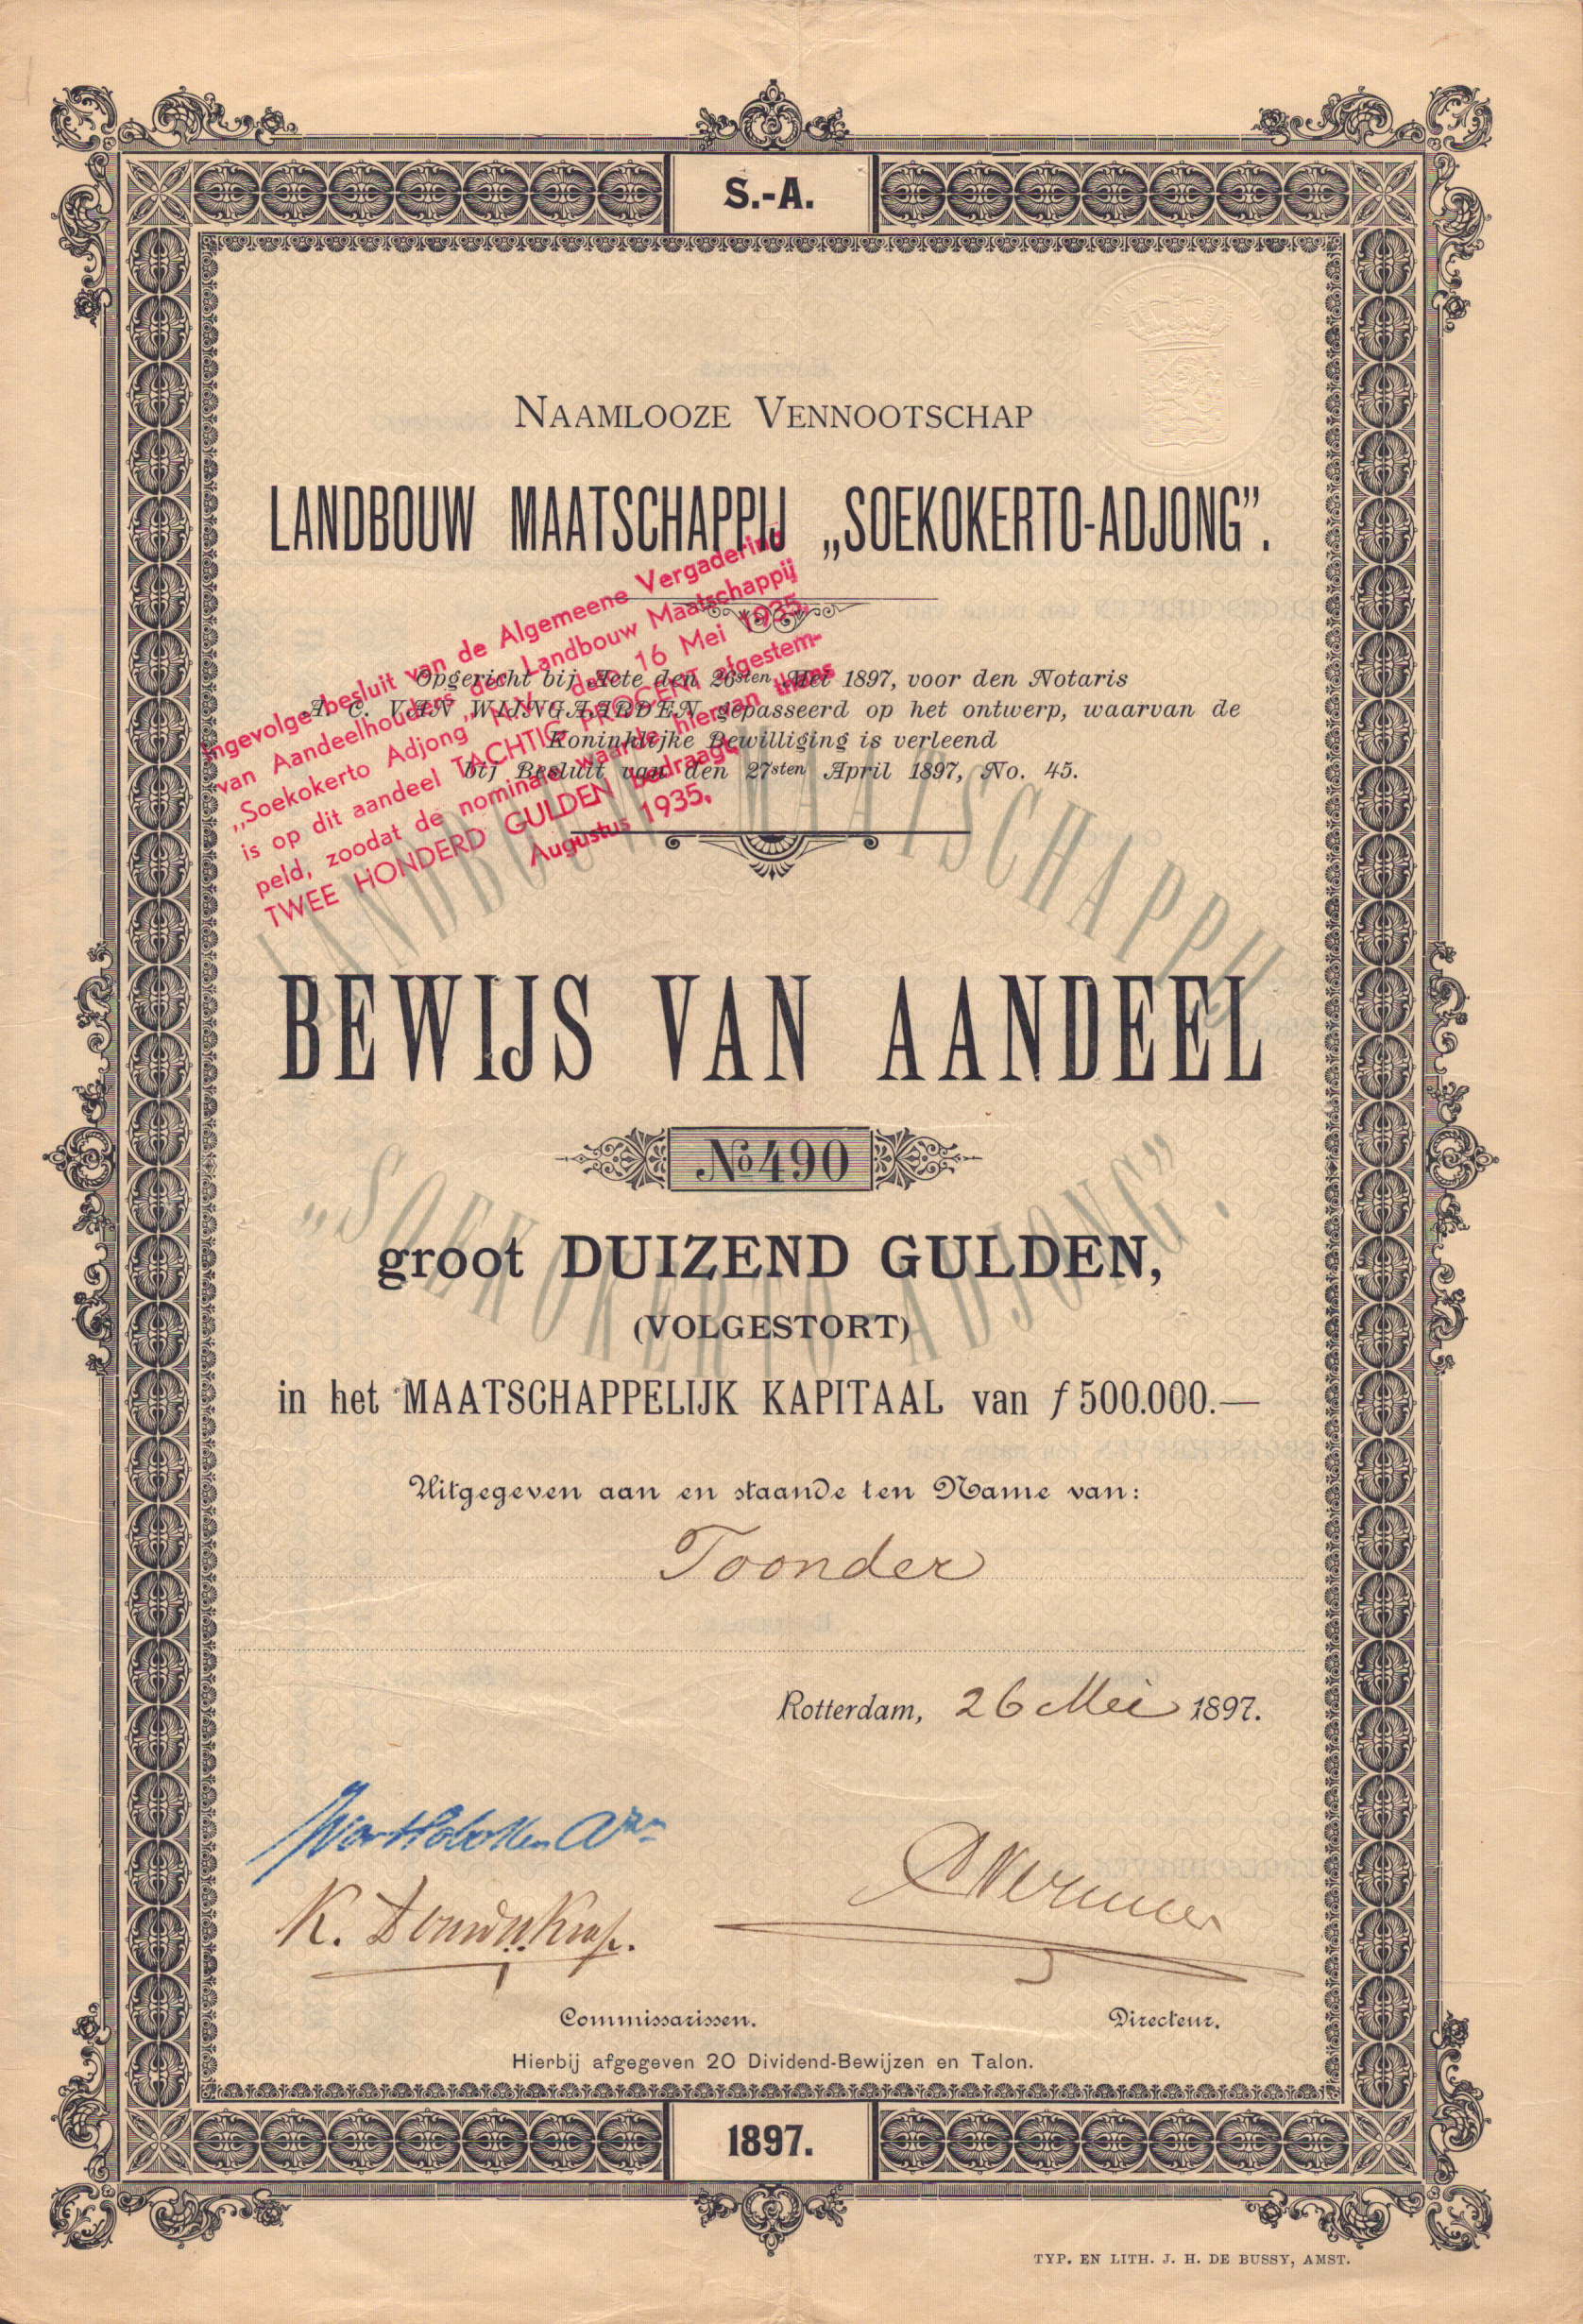 S.-A.
NAAMLOOZE VENNOOTSCHAP
LANDBOUW MAATSCHAPPIJ „SOEKOKERTO-ADJONG”.
Opgericht bij Acte den 26sten Mei 1897, voor den Notaris
A. C. VAN WIJNGAARDEN gepasseerd op het ontwerp, waarvan de
Koninklijke Bewilliging is verleend
bij Besluit van den 27sten April 1897, No. 45.
Ingevolge besluit van de Algemeene Vergadering
van Aandeelhouders der Landbouw Maatschappij
„Soekokerto Adjong N.V. dd. 16 Mei 1935,
is op dit aandeel TACHTIG PROCENT afgestem-
peld, zoodat de nominale waarde hiervan thans
TWEE HONDERD GULDEN bedraagt
Augustus 1935.
LANDBOUW MAATSCHAPPIJ
BEWIJS VAN AANDEEL
No 490
„SOEKOKERTO-ADJONG”.
groot DUIZEND GULDEN,
(VOLGESTORT)
in het MAATSCHAPPELIJK KAPITAAL van ƒ 500.000.—
Uitgegeven aan en staande ten Name van:
Toonder
Rotterdam, 26 Mei 1897.
Commissarissen.
Directeur.
Hierbij afgegeven 20 Dividend-Bewijzen en Talon.
1897.
TYP. EN LITH. J. H. DE BUSSY, AMST.